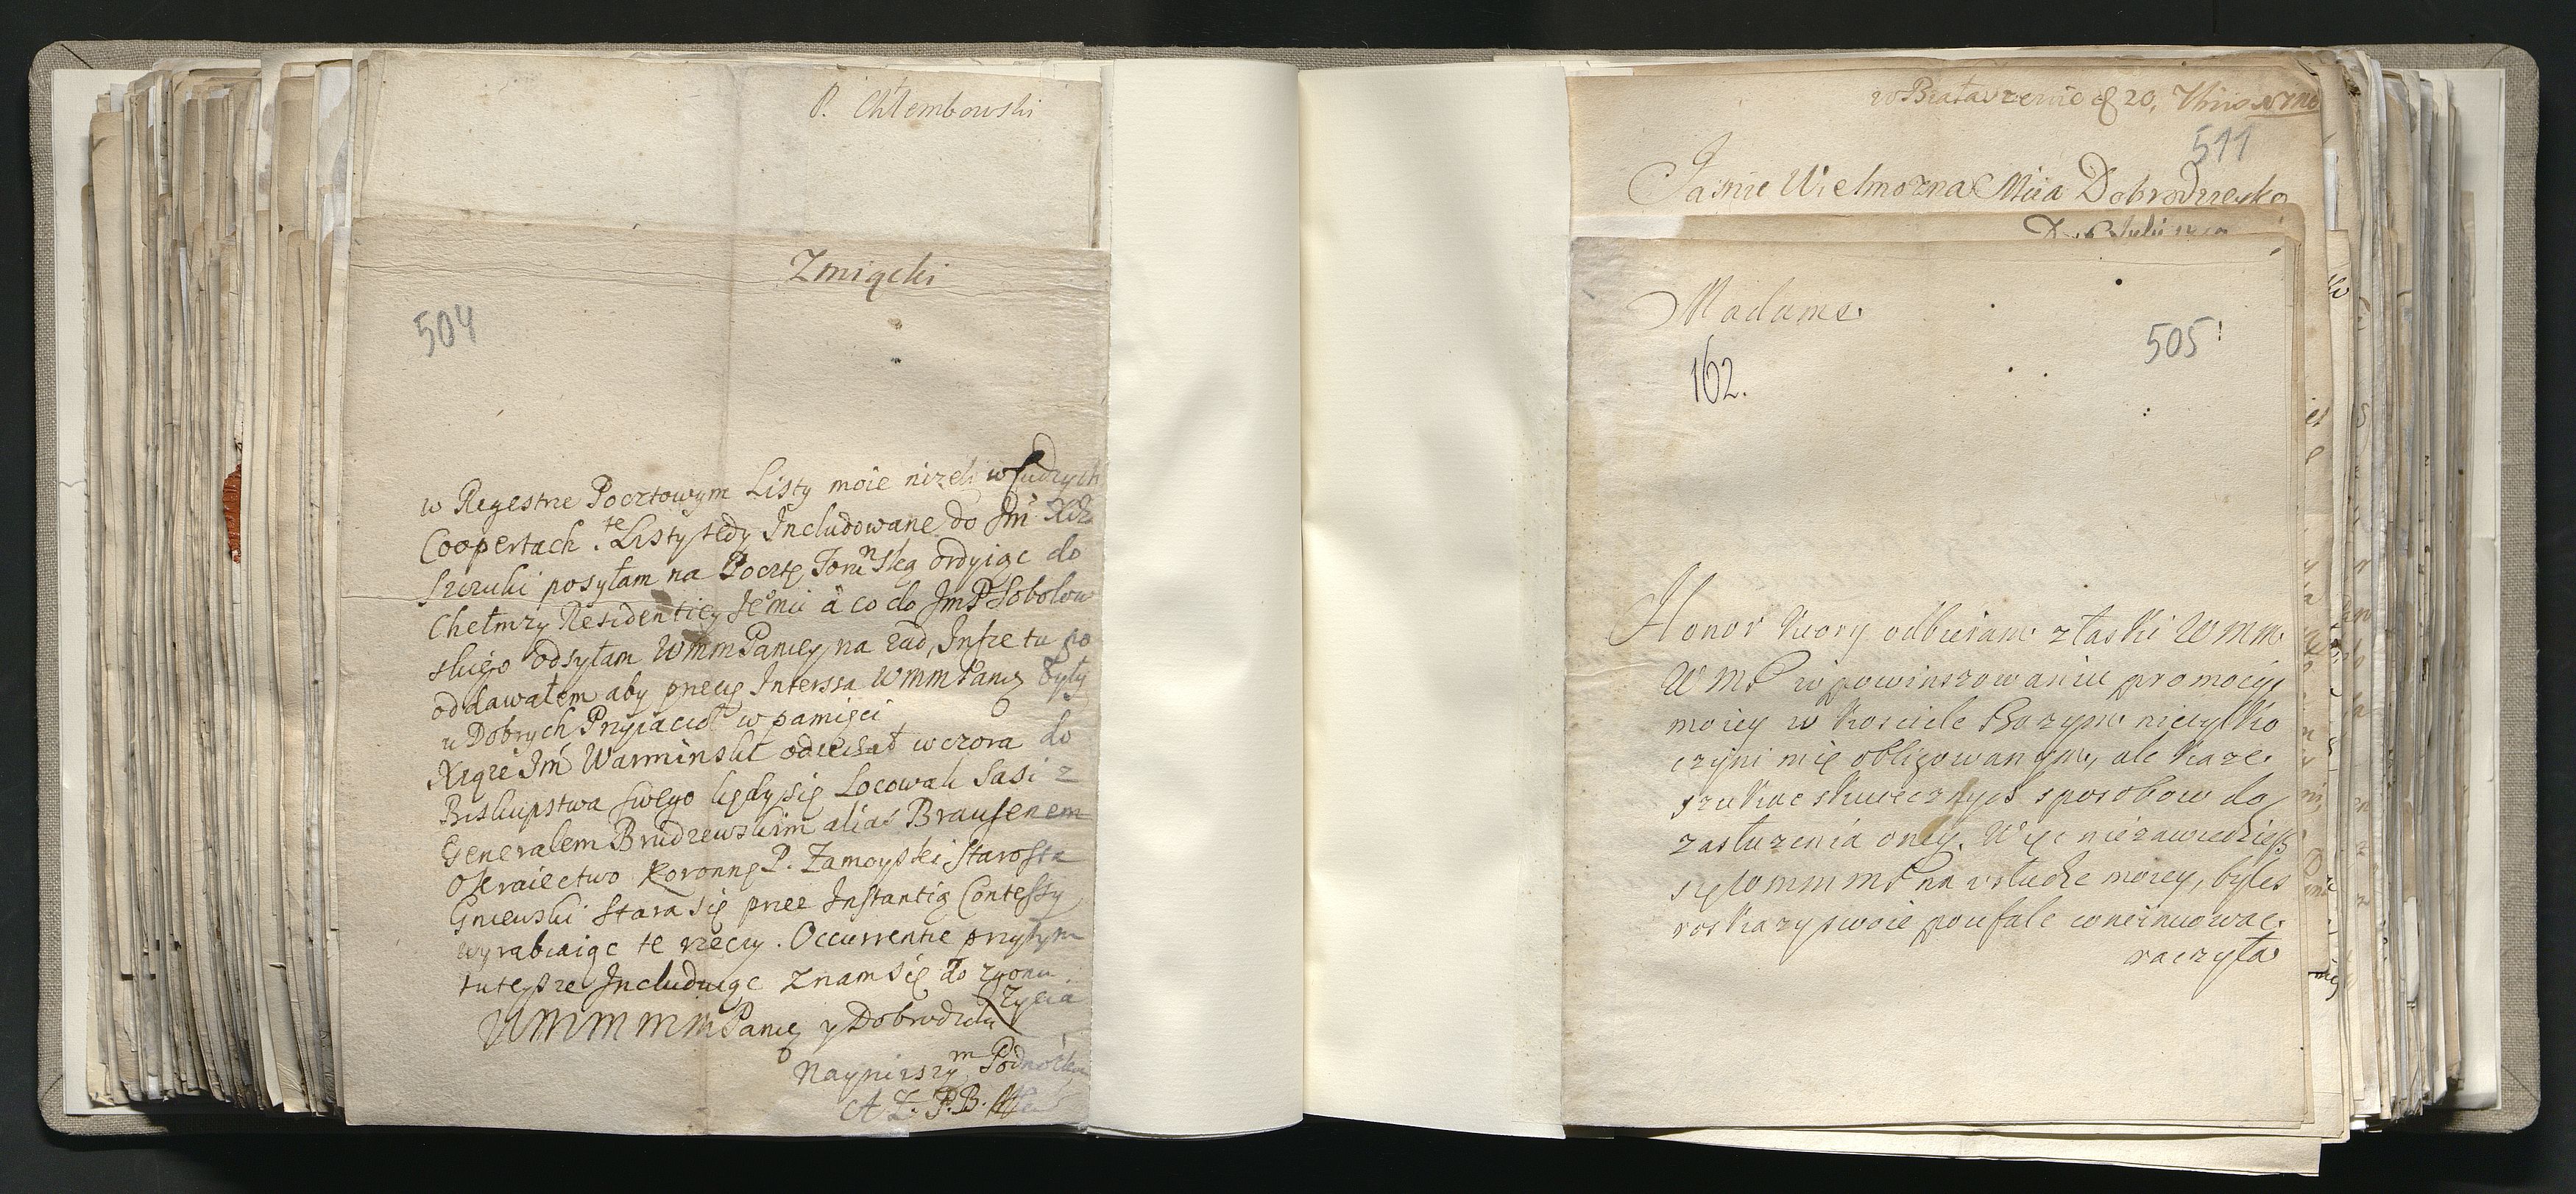 P. Chlembowski
Zmiącki
504
w Regestrze Pocztowym Listy moie nizeli w cudzych
Coopertach. te Listy tedy Includowane do Jm Xdza
Szczuki posyłam na Pocztę Toruńską
Chełmzy Residentiey Jemu à co do JmP Sobolew
skiego odsyłam WmmPaniey na zad, Insze tu po
oddawałem aby przecię Interssa WmmPaniey były
u Dobrych Przyiaciół w pamięci
Xiąże Jm Warminski odiechał wczora do
Biskupstwa swego kędy się Locowali Sasi z
Generalem Brudzewskim alias Brausenem
O Kraiectwo Koronne P. Zamoyski Starosta
Gniewski stara się przez Instantią Contessy
wyrabiaiąc te rzeczy. Occurrentie przytym
tuteysze Includuiąc znam się do zgonu
Zycia
WMMMMPaniey y Dobrodziki
Nayniższym Podnóżkiem
A Z. P.B.
w Białaczewie d 20,
511
Jasnie Wielmozna Mcia Dobrodzieyko
D. 6 Julii
Madame.
162.
505
Honor ktory odbieram z łaski Wmm
WMP w powinszowaniu promocyi
moiey w Kosciele Bozym nietylko
czyni mię obligowanym, ale każe
szukac skutecznych sposobow do
zasłużenia oney. Więc niezawiedziesz
się WmmmP na usłudze moiey, byles
roskazy swoie poufale
raczyła